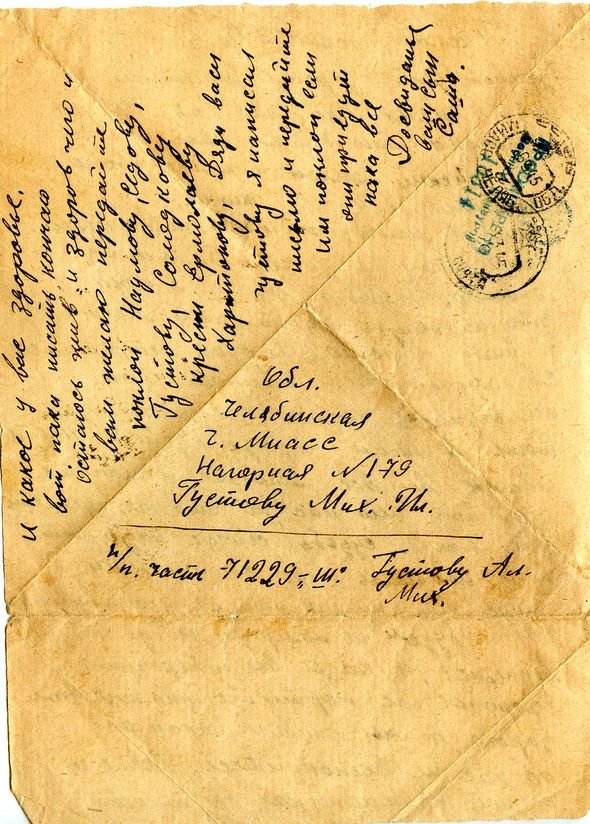 и какое у вас здоровье.
вот пака писать кончаю
остаюсь жив и здоров чего и
вам желаю передайте
поклон Наумову, Седову,
Густову, Солодкову
крёсти Ермолаеву
Харитонову, Дядя вася
густову я написал
письмо и передайте
им поклон если
они приедут
пака все
Досвидания
ваш сын
Саша.
Обл.
Челябинская
г. Миасс
Нагорная N 179
Густову Мих. Ил.
п/п. часть 71229 "Ш" Густову Ал.
Мих.